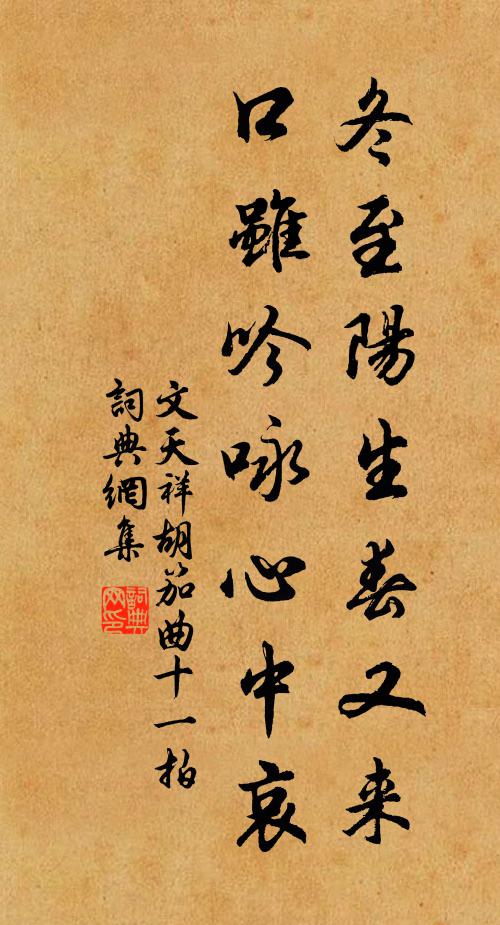 冬至陽生春又来
口雖吟咏心中哀
文天祥胡笳曲十一拍
詞典網集
詞典网印